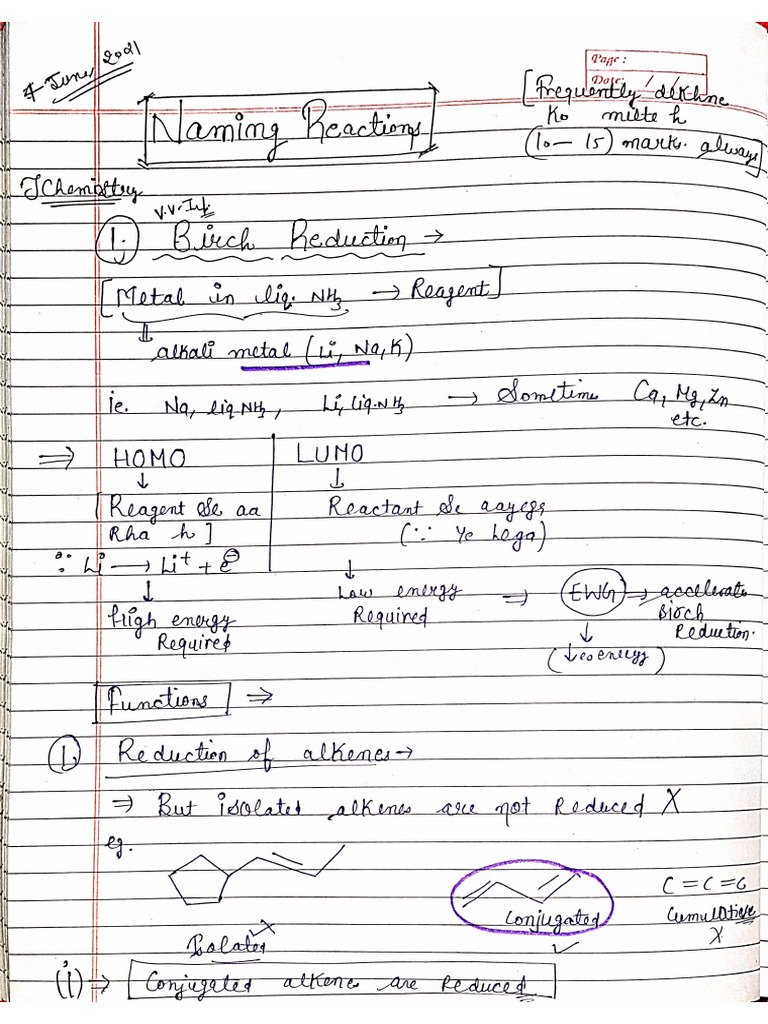 4 June 2021
Page :
Date: / /
[Frequently dekhne
Ko milte h
(10 — 15) marks. always]
Naming Reactions
JChemistry
V.V. Inf.
1. Birch Reduction →
[Metal in liq. NH3 → Reagent]
⇓
alkali metal (Li, Na, K)
ie. Na, liq NH3, Li, liq. NH3 → Sometime Ca, Mg, Zn
etc.
⇒ HOMO | LUMO
↓ ↓
[Reagent Se aa Reactant Se aayega
Rha h] (∵ Ye lega)
∵ Li → Li+ + e⊖
↓ ↓
High energy
Required
Low energy
Required
⇒ EWG → accelerate
Birch
Reduction.
↓
(↓es energy)
Functions ⇒
1. Reduction of alkenes →
⇒ But isolated alkenes are not Reduced X
eg.
C = C = C
Conjugated
Cumulative
X
Isolated
(i) ⇒ Conjugated alkene are Reduced